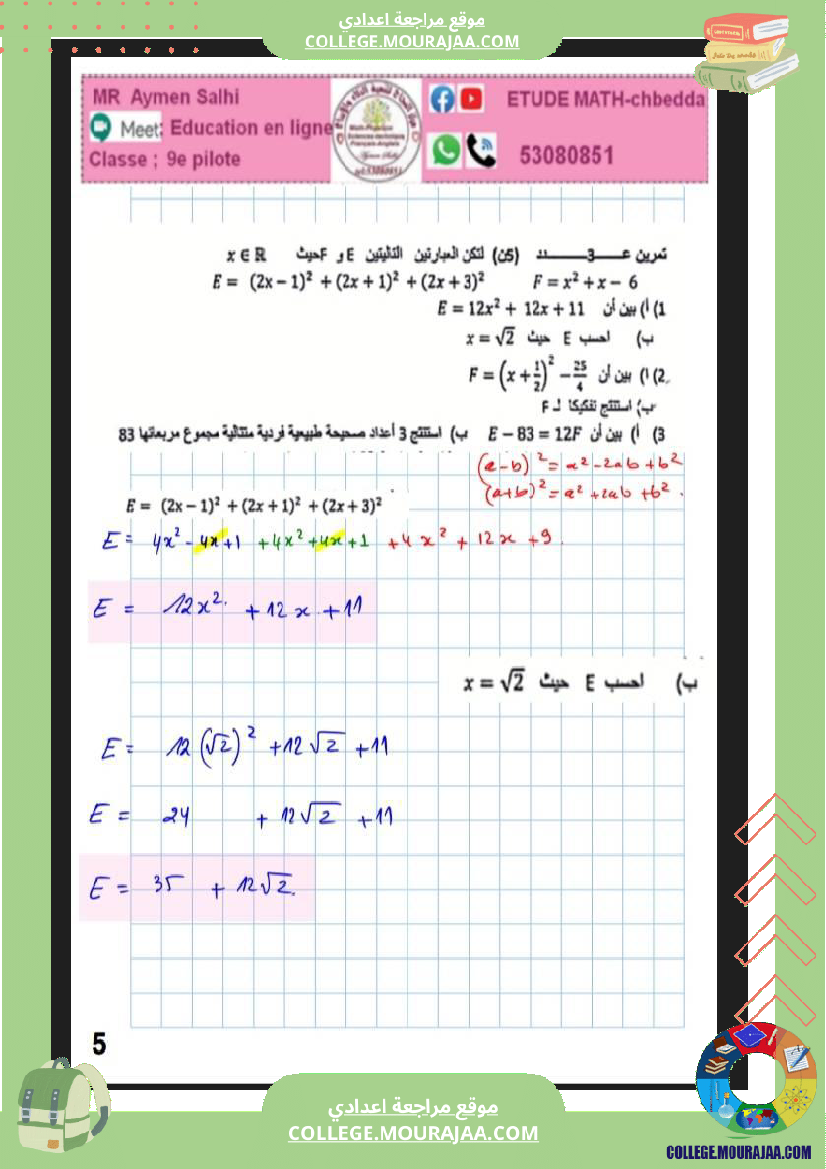 موقع مراجعة اعدادي
COLLEGE.MOURAJAA.COM
MR Aymen Salhi
Meet: Education en ligne
Classe ; 9e pilote
ETUDE MATH-chbedda
53080851
تمرين عـــ3ـــدد (5ن) لتكن العبارتين التاليتين E و F حيث x ∈ ℝ
E = (2x – 1)² + (2x + 1)² + (2x + 3)² F = x² + x – 6
1) أ) بين أن E = 12x² + 12x + 11
ب) احسب E حيث x = √2
2) أ) بين أن F = (x + 1/2)² – 25/4
ب) استنتج تفكيكا لـ F
3) أ) بين أن E – 83 = 12F ب) استنتج 3 أعداد صحيحة طبيعية فردية متتالية مجموع مربعاتها 83
(a-b)² = a² - 2ab + b²
(a+b)² = a² + 2ab + b².
E = (2x – 1)² + (2x + 1)² + (2x + 3)²
E = 4x² - 4x + 1 + 4x² + 4x + 1 + 4x² + 12x + 9.
E = 12x² + 12x + 11
ب) احسب E حيث x = √2
E = 12(√2)² + 12√2 + 11
E = 24 + 12√2 + 11
E = 35 + 12√2.
5
موقع مراجعة اعدادي
COLLEGE.MOURAJAA.COM
COLLEGE.MOURAJAA.COM